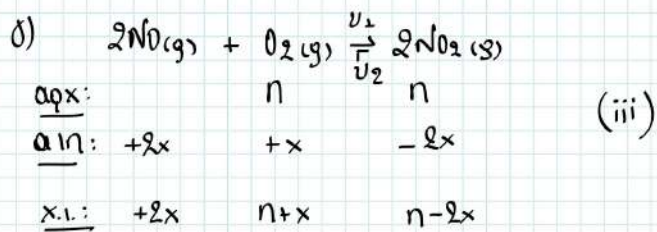 δ) 2NO(g) + O2(g) ⇄ 2NO2(g)
υ1
υ2
αρχ: n n
(iii)
α|π: +2x +x -2x
χ.ι.: +2x n+x n-2x